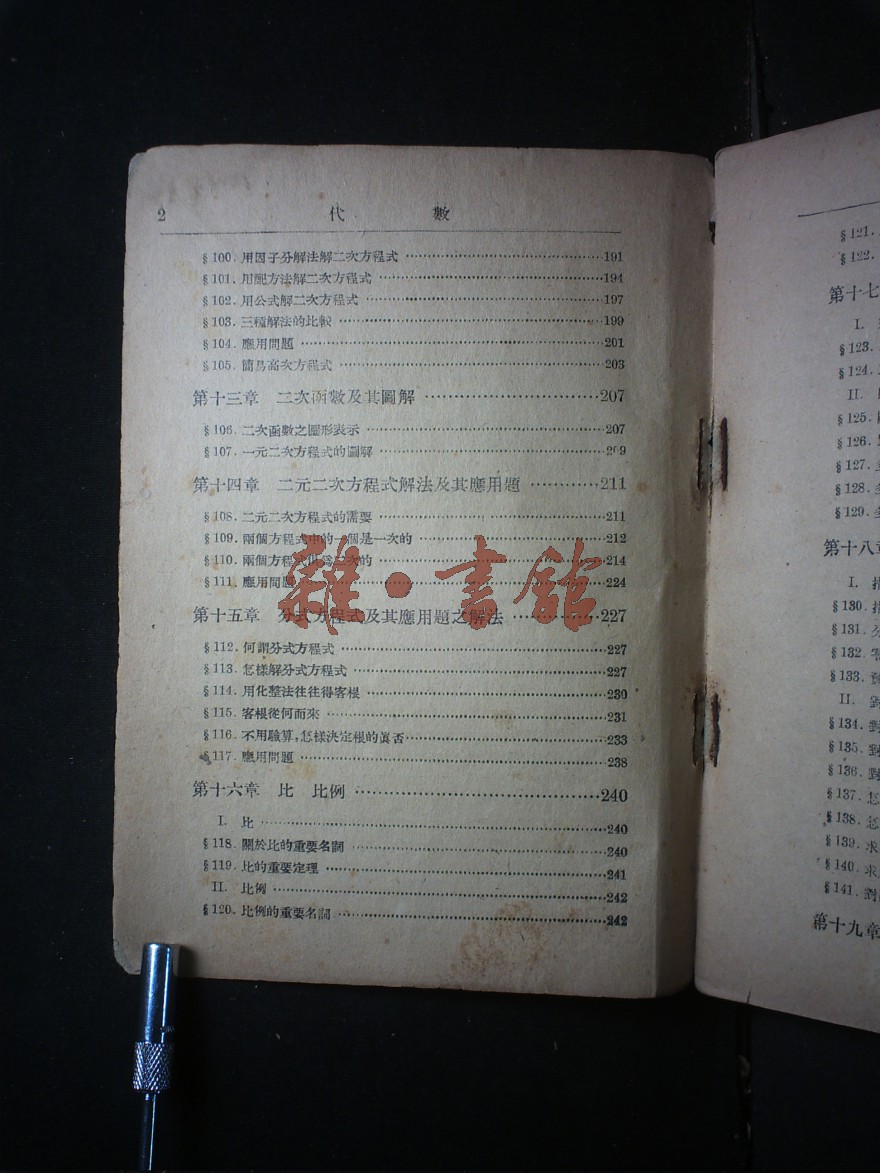 2 代數
§100. 用因子分解法解二次方程式 191
§101. 用配方法解二次方程式 194
§102. 用公式解二次方程式 197
§103. 三種解法的比較 199
§104. 應用問題 201
§105. 簡易高次方程式 203
第十三章 二次函數及其圖解 207
§106. 二次函數之圖形表示 207
§107. 一元二次方程式的圖解 209
第十四章 二元二次方程式解法及其應用題 211
§108. 二元二次方程式的需要 211
§109. 兩個方程式中的一個是一次的 212
§110. 兩個方程式俱爲二次的 214
§111. 應用問題 224
雜·書館
第十五章 分式方程式及其應用題之解法 227
§112. 何謂分式方程式 227
§113. 怎樣解分式方程式 227
§114. 用化整法往往得客根 230
§115. 客根從何而來 231
§116. 不用驗算,怎樣決定根的眞否 233
§117. 應用問題 238
第十六章 比 比例 240
I. 比 240
§118. 關於比的重要名詞 240
§119. 比的重要定理 241
II. 比例 242
§120. 比例的重要名詞 242
§121.
§122.
第十七
I.
§123.
§124.
II.
§125.
§126.
§127.
§128.
§129.
第十八章
I. 指
§130. 指
§131. 分
§132.
§133.
II. 對
§134. 對
§135. 對
§136. 對
§137. 怎
§138. 怎
§139. 求
§140. 求
§141. 對
第十九章